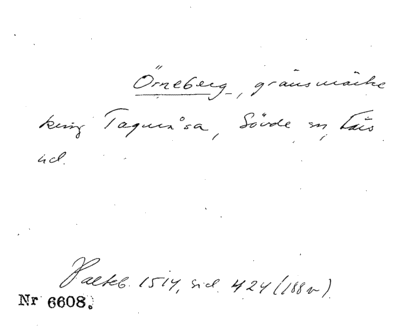 Örneberg, gränsmärke
kring Taguråsa, Sövde sn, Färs
hd.
Palteb. 1514, sid. 424 (188v).
Nr 6608.